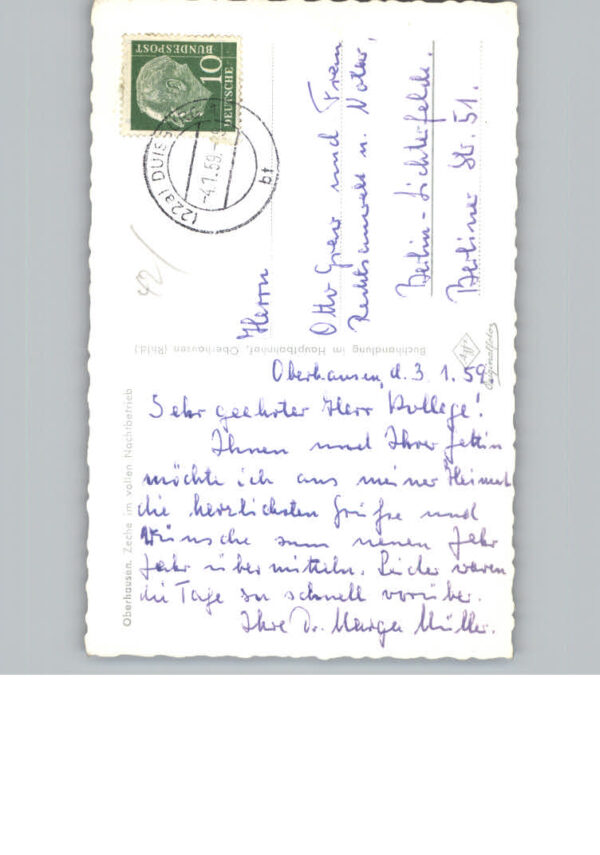 DEUTSCHE
BUNDESPOST
10
(22a) DUISBURG
-4.1.59.-
bt
42/
Herrn
Otto Grew und Frau
Rechtsanwalt u. Notar,
Berlin-Lichterfelde.
Berliner Str. 51.
Buchhandlung im Hauptbahnhof, Oberhausen (Rhld.)
Agfa
Originalfoto
Oberhausen. Zeche im vollen Nachtbetrieb
Oberhausen, d. 3.1.59
Sehr geehrter Herr Kollege!
Ihnen und Ihrer Gattin
möchte ich aus meiner Heimat
die herzlichsten Grüße und
Wünsche zum neuen Jahr
Jahr übermitteln. Leider waren
die Tage zu schnell vorüber.
Ihre Dr. Marga Müller.